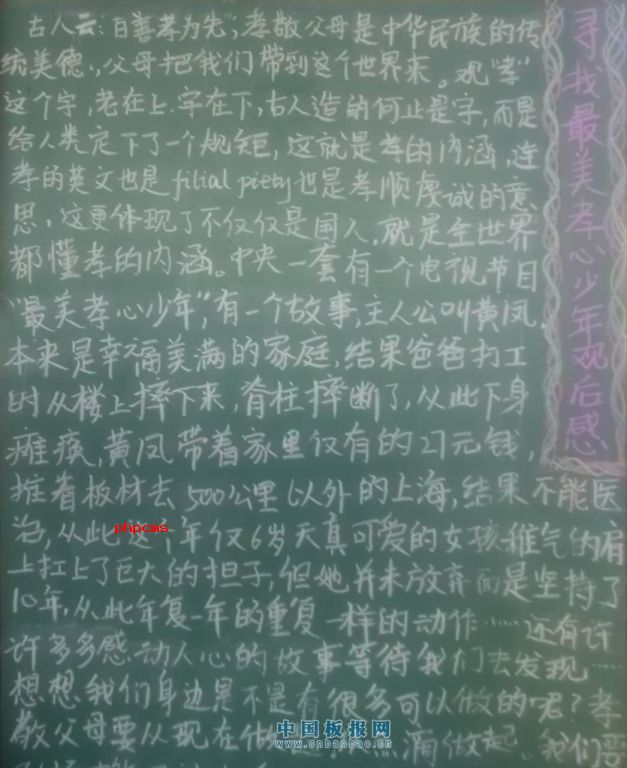 寻找最美孝心少年观后感
古人云:百善孝为先",孝敬父母是中华民族的传
统美德.,父母把我们带到这个世界来。观"孝"
这个字,老在上.子在下,古人造的何止是字,而是
给人类定下了一个规矩,这就是孝的内涵,连
孝的英文也是filial piety也是孝顺虔诚的意
思,这更体现了不仅仅是国人,就是全世界
都懂孝的内涵。中央一套有一个电视节目
"最美孝心少年",有一个故事,主人公叫黄凤,
本来是幸福美满的家庭,结果爸爸打工
时从楼上摔下来,脊柱摔断了,从此下身
瘫痪,黄凤带着家里仅有的27元钱,
推着板材去500公里以外的上海,结果不能医
治,从此这个年仅6岁天真可爱的女孩稚气的肩
上扛上了巨大的担子,但她并未放弃而是坚持了
10年,从此年复一年的重复一样的动作……还有许
许多多感动人心的故事等待我们去发现……
想想我们身边是不是有很多可以做的呢?孝
敬父母要从现在做 滴做起。我们要
phpcms
中国板报网
www.cnbanbao.cn